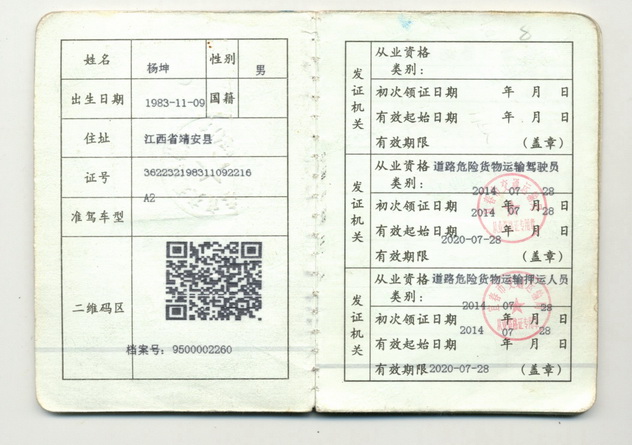 姓名 杨坤 性别 男
出生日期 1983-11-09 国籍
住址 江西省靖安县
证号 362232198311092216
准驾车型 A2
二维码区
档案号：9500002260
发证机关
从业资格类别：
初次领证日期 年 月 日
有效起始日期 年 月 日
有效期限 （盖章）
发证机关
从业资格类别： 道路危险货物运输驾驶员
初次领证日期 2014 年 07 月 28 日
有效起始日期 2014 年 07 月 28 日
有效期限 2020-07-28 （盖章）
发证机关
从业资格类别： 道路危险货物运输押运人员
初次领证日期 2014 年 07 月 28 日
有效起始日期 2014 年 07 月 28 日
有效期限 2020-07-28 （盖章）